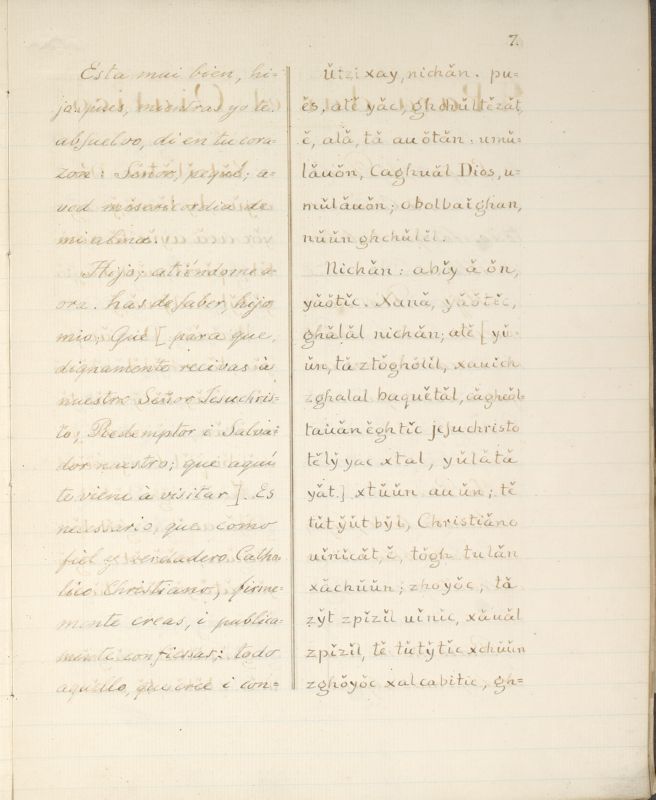 7.
Esta mui bien, hi-
jo. pues, mientras yo te
absuelvo, di en tu cora-
zon: Señor, pequé; a-
ved misericordia de
mi alma.
Hijo; atiéndeme a-
ora. has de saber, hijo
mio; Que [ para que,
dignamente recivas à
nuestro Señor Jesuchris-
to; Redemptor i Salva-
dor nuestro; que aquí
te viene à visitar ]. Es
necessario, que como
fiel y verdadero Catho-
lico Christiano, firme-
mente creas, i publica-
mente confiessas; todo
aquello, que cree i con-
ŭtzi xay, nichăn. pu-
ĕs, atĕ yăc, ghchŭltĕzăt,
ĕ, ală, tă auŏtăn: umŭ-
lăuŏn, Caghuăl Dios, u-
mŭlăuŏn; obolbaighan,
nŭŭn ghchŭlĕl.
Nichăn: abĭy ă ŏn,
yăŏtĭc. Xană, yăŏtĭc,
ghălăl nichăn; atĕ [ yŭ-
ŭn, tă ztŏghŏlĭl, xauĭch
zghalal baquĕtăl, căghŏl-
tauăn ĕghtĭc jesuchristo
tĕlỹ yac xtal, yŭlătă
yăt.] xtŭŭn auŭn; tĕ
tŭtỹŭt bỹl, Christiăno
uĭnĭcăt, ĕ, tŏgh tulăn
xăchŭŭn; zhoyŏc, tă
zỹt zpĭzĭl uĭnic, xăuăl
zpĭzĭl, tĕ tŭtỹtĭc xchŭŭn
zghŏyŏc xalcabitic; gh-